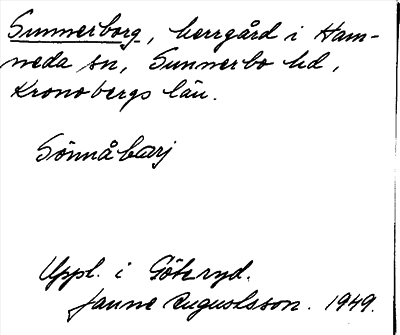 Sunnerborg, herrgård i Ham-
neda sn, Sunnerbo hd,
Kronobergs län.
Sönnåbarj
Uppl. i Göteryd.
Janne Augustsson. 1949.